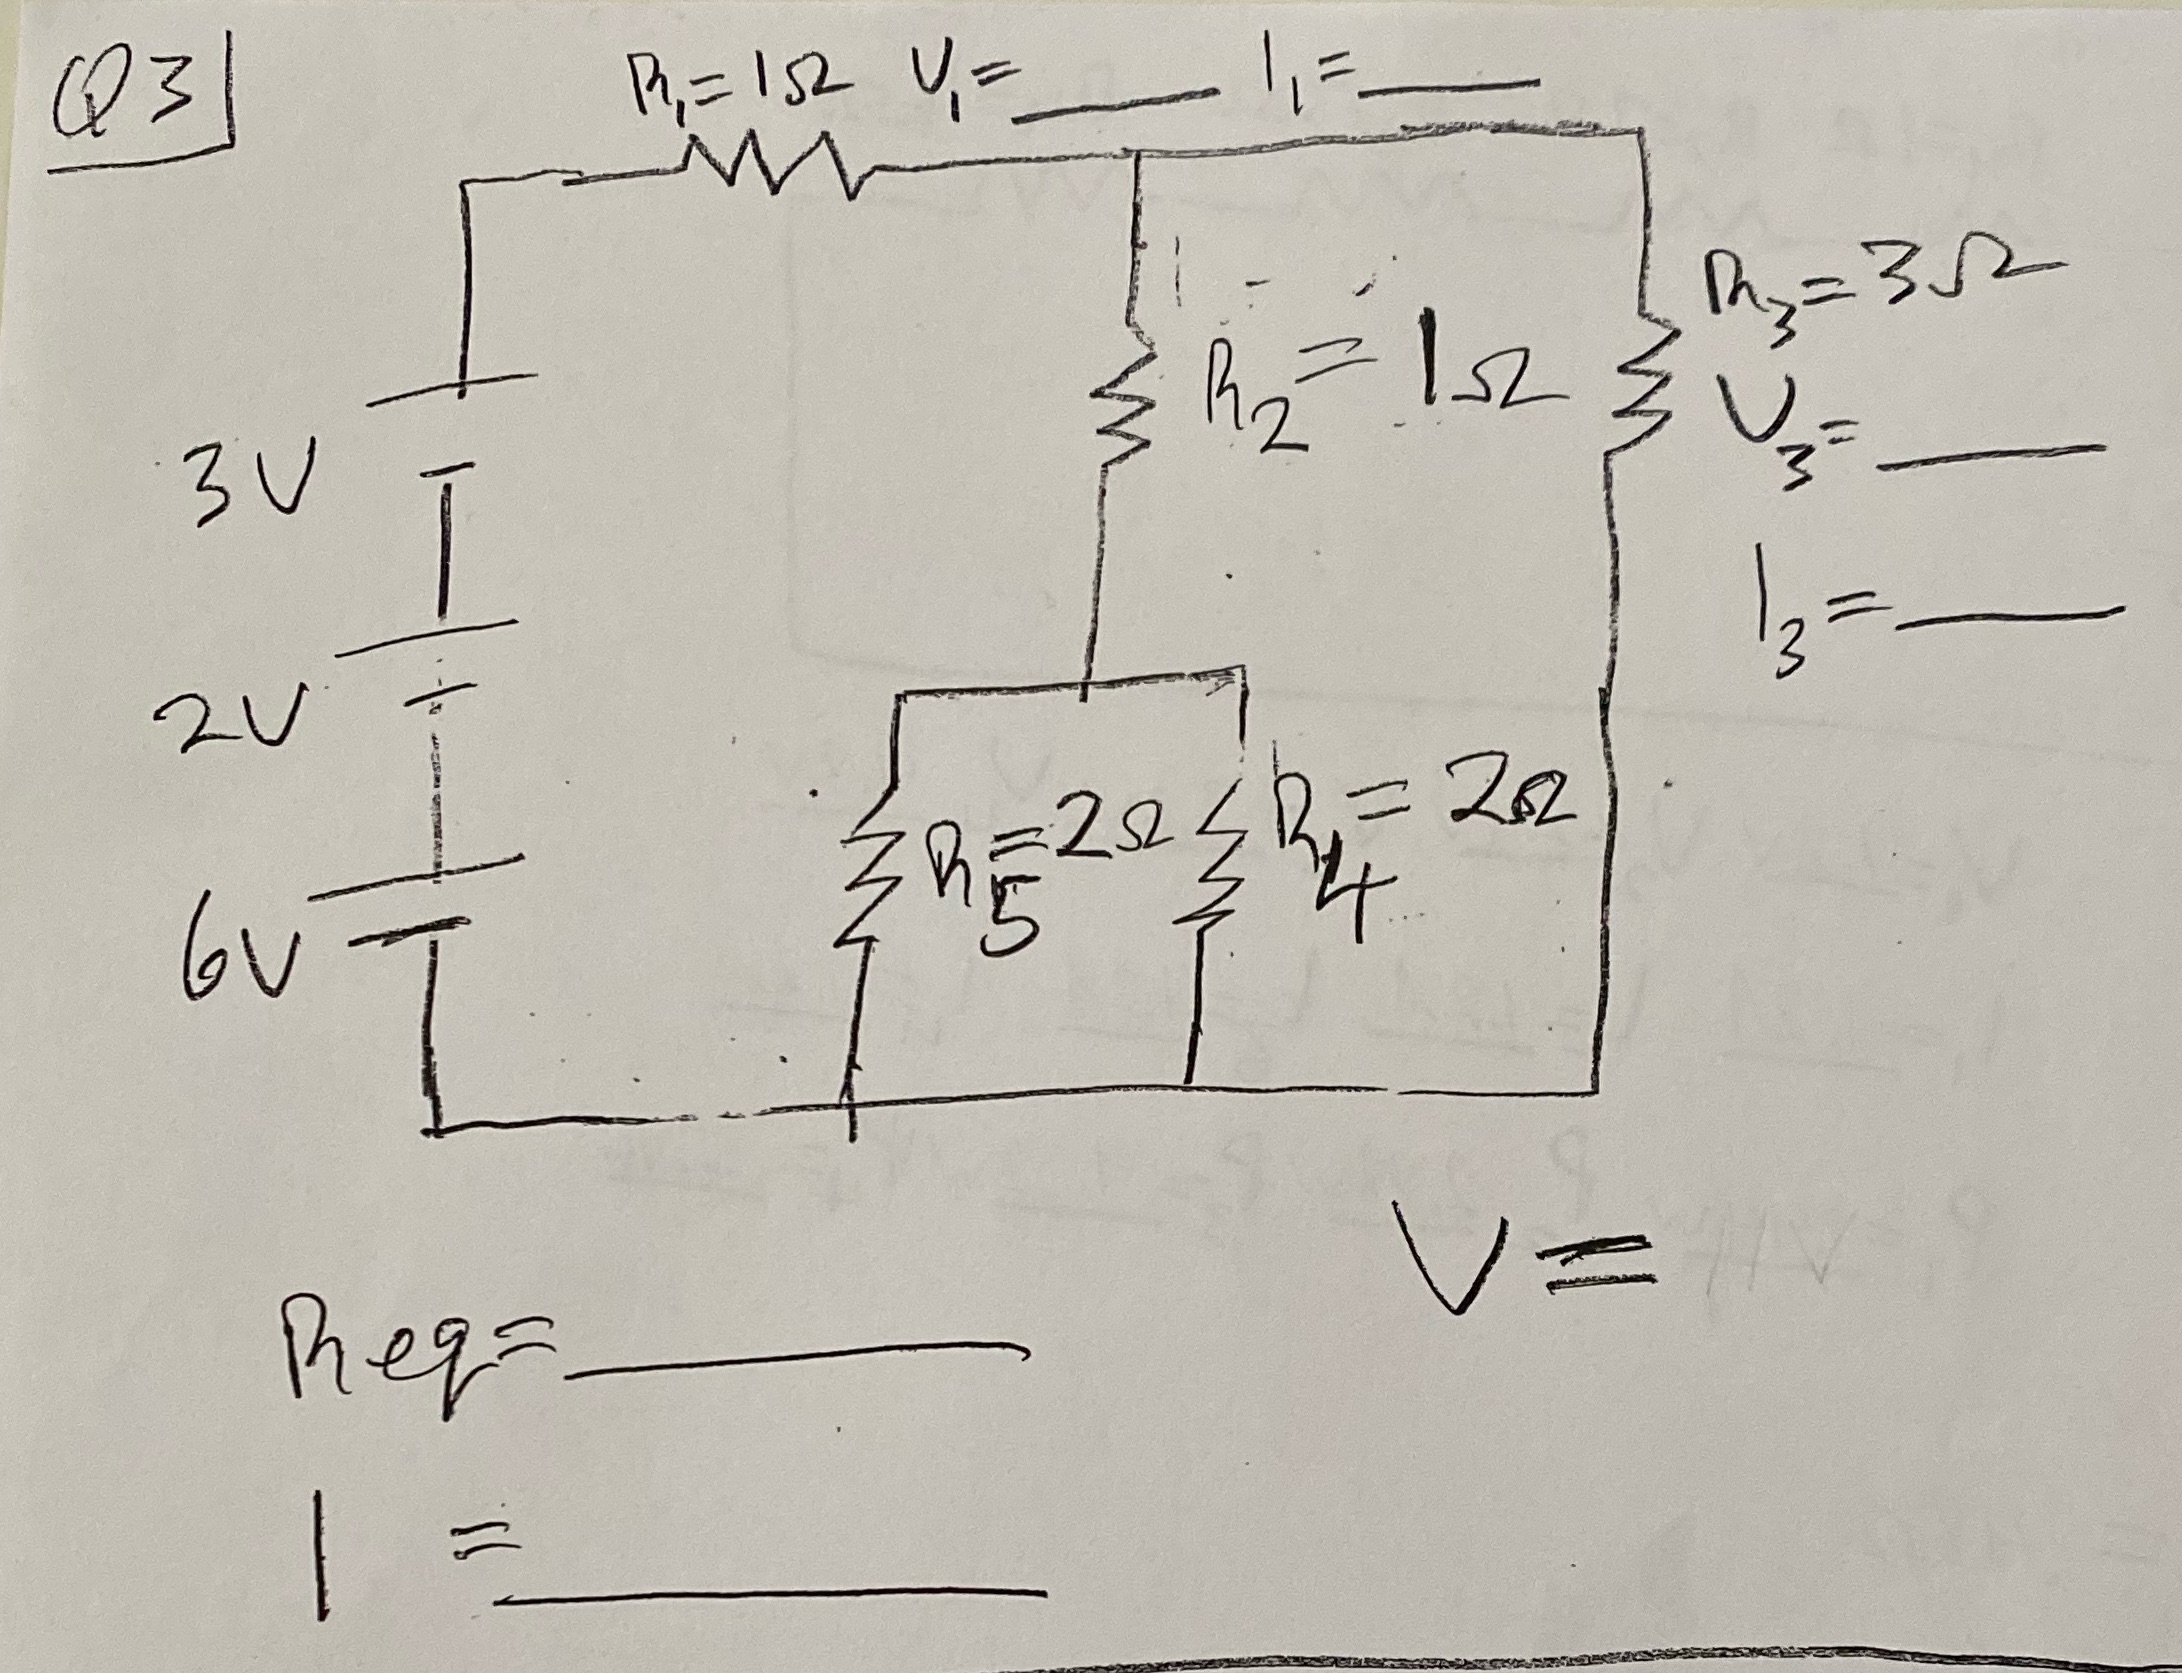 Q3
R₁=1Ω V₁=____ I₁=____
R₃=3Ω
R₂=1Ω
V₃=____
3V
I₃=____
2V
R₅=2Ω R₄=2Ω
6V
V=
Req=____
I=____